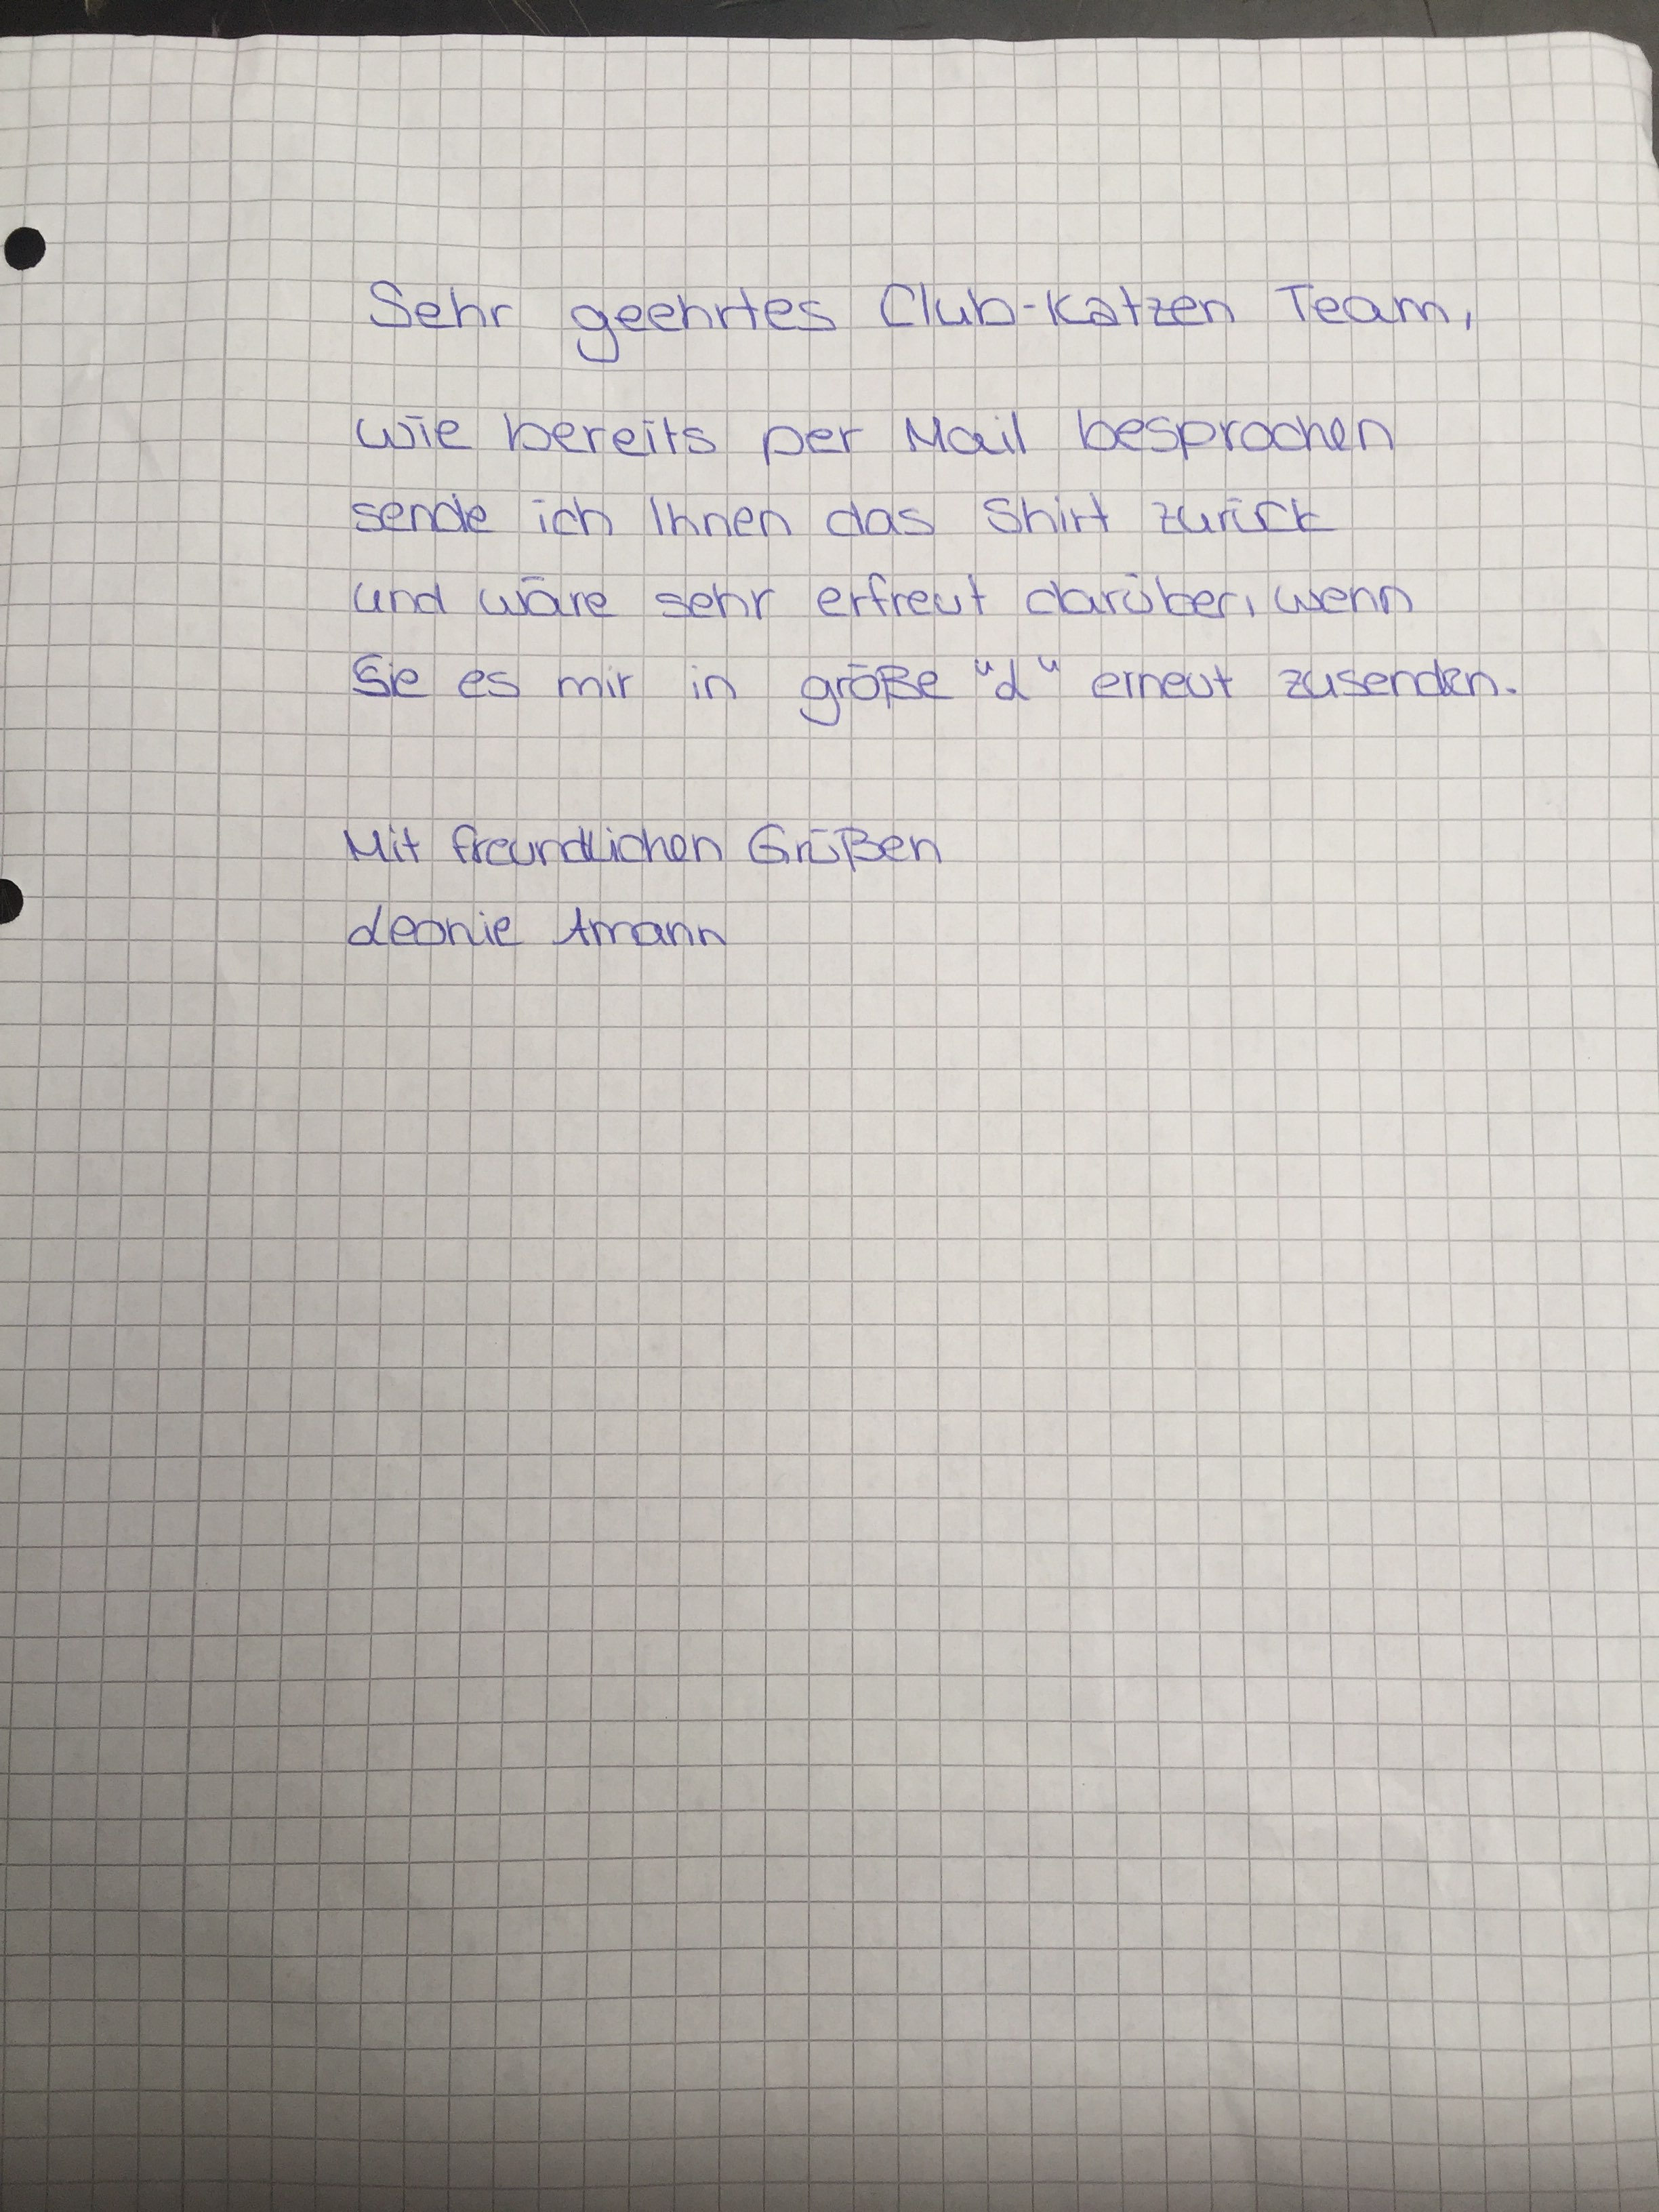 Sehr geehrtes Club-Katzen Team,
wie bereits per Mail besprochen
sende ich Ihnen das Shirt zurück
und wäre sehr erfreut darüber, wenn
Sie es mir in größe "L" erneut zusenden.
Mit freundlichen Grüßen
Leonie Amann